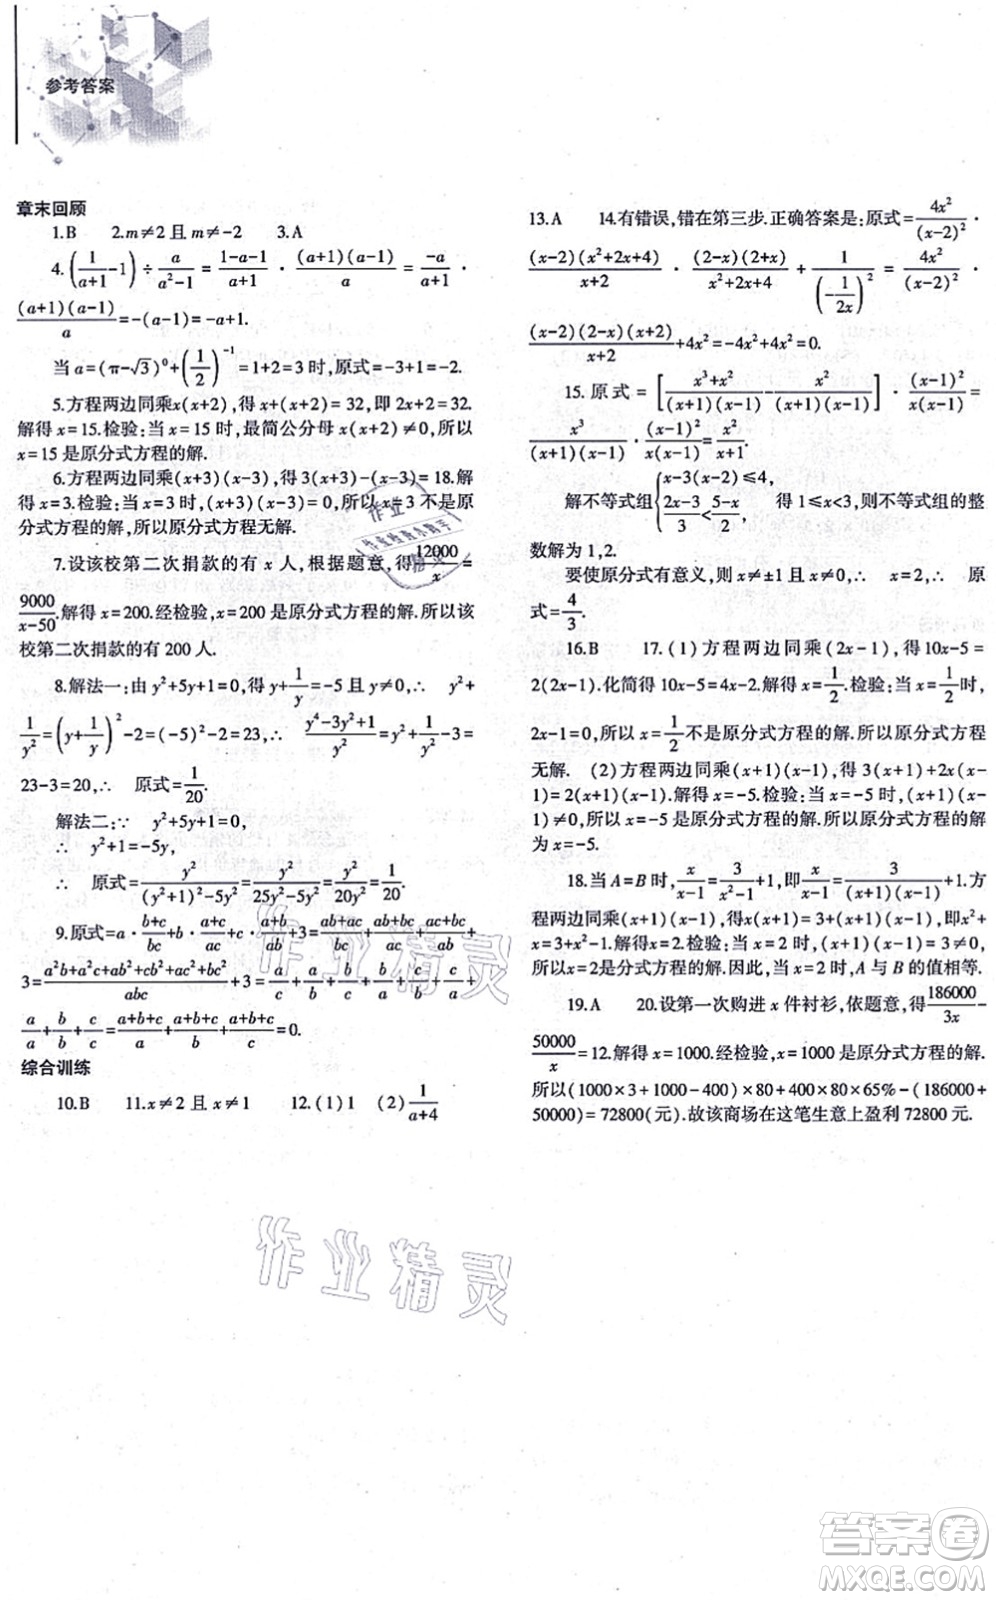 参考答案
章末回顾
1.B 2.m≠2 且 m≠-2 3.A
4.(1/(a+1)-1)÷a/(a²-1)=(1-a-1)/(a+1)·(a+1)(a-1)/a=-a/(a+1)·
(a+1)(a-1)/a=-(a-1)=-a+1.
当 a=(π-√3)⁰+(1/2)⁻¹=1+2=3 时,原式=-3+1=-2.
5.方程两边同乘x(x+2),得 x+(x+2)=32,即 2x+2=32.
解得 x=15.检验:当 x=15 时,最简公分母 x(x+2)≠0,所以
x=15 是原分式方程的解.
6.方程两边同乘(x+3)(x-3),得 3(x+3)-(x-3)=18.解
得 x=3.检验:当 x=3 时,(x+3)(x-3)=0,所以 x=3 不是原
分式方程的解,所以原分式方程无解.
7.设该校第二次捐款的有 x 人,根据题意,得12000/x=
9000/(x-50).解得 x=200.经检验,x=200 是原分式方程的解.所以该
校第二次捐款的有 200 人.
8.解法一:由 y²+5y+1=0,得 y+1/y=-5 且 y≠0,∴ y²+
1/y²=(y+1/y)²-2=(-5)²-2=23,∴ (y⁴-3y²+1)/y²=y²+1/y²-3=
23-3=20,∴ 原式=1/20.
解法二:∵ y²+5y+1=0,
∴ y²+1=-5y,
∴ 原式=y²/((y²+1)²-5y²)=y²/(25y²-5y²)=y²/20y²=1/20.
9.原式=a·(b+c)/bc+b·(a+c)/ac+c·(a+b)/ab+3=(ab+ac)/bc+(ab+bc)/ac+(ac+bc)/ab+
3=(a²b+a²c+ab²+b²c+ac²+bc²)/abc+3=a/c+a/b+b/c+b/a+c/b+c/a+
a/a+b/b+c/c=(a+b+c)/a+(a+b+c)/b+(a+b+c)/c=0.
综合训练
10.B 11.x≠2 且 x≠1 12.(1)1 (2)1/(a+4)
13.A 14.有错误,错在第三步.正确答案是:原式=4x²/(x-2)²·
(x-2)(x²+2x+4)/(x+2)·(2-x)(2+x)/(x²+2x+4)+1/(-1/2x)²=4x²/(x-2)²·
(x-2)(2-x)(x+2)/(x+2)+4x²=-4x²+4x²=0.
15.原式=[(x³+x²)/(x+1)(x-1)-x²/(x+1)(x-1)]·(x-1)²/x(x-1)=
x³/(x+1)(x-1)·(x-1)²/x(x-1)=x²/(x+1).
解不等式组{x-3(x-2)≤4, (2x-3)/3<(5-x)/2 得 1≤x<3,则不等式组的整
数解为 1,2.
要使原分式有意义,则 x≠±1 且 x≠0,∴ x=2,∴ 原
式=4/3.
16.B 17.(1)方程两边同乘(2x-1),得 10x-5=
2(2x-1).化简得 10x-5=4x-2.解得 x=1/2.检验:当 x=1/2时,
2x-1=0,所以 x=1/2不是原分式方程的解,所以原分式方程
无解. (2)方程两边同乘(x+1)(x-1),得 3(x+1)+2x(x-
1)=2(x+1)(x-1).解得 x=-5.检验:当 x=-5 时,(x+1)(x-
1)≠0,所以 x=-5 是原分式方程的解.所以原分式方程的解
为 x=-5.
18.当 A=B 时,x/(x-1)=3/(x²-1)+1,即x/(x-1)=3/(x+1)(x-1)+1.方
程两边同乘(x+1)(x-1),得x(x+1)=3+(x+1)(x-1),即x²+
x=3+x²-1.解得x=2.检验:当 x=2 时,(x+1)(x-1)=3≠0,
所以x=2是分式方程的解.因此,当 x=2 时,A 与 B 的值相等.
19.A 20.设第一次购进 x 件衬衫,依题意,得186000/3x-
50000/x=12.解得 x=1000.经检验,x=1000 是原分式方程的解.
所以(1000×3+1000-400)×80+400×80×65%-(186000+
50000)=72800(元).故该商场在这笔生意上盈利 72800 元.
作业精灵
作业精灵
答案圈
MXQE.COM